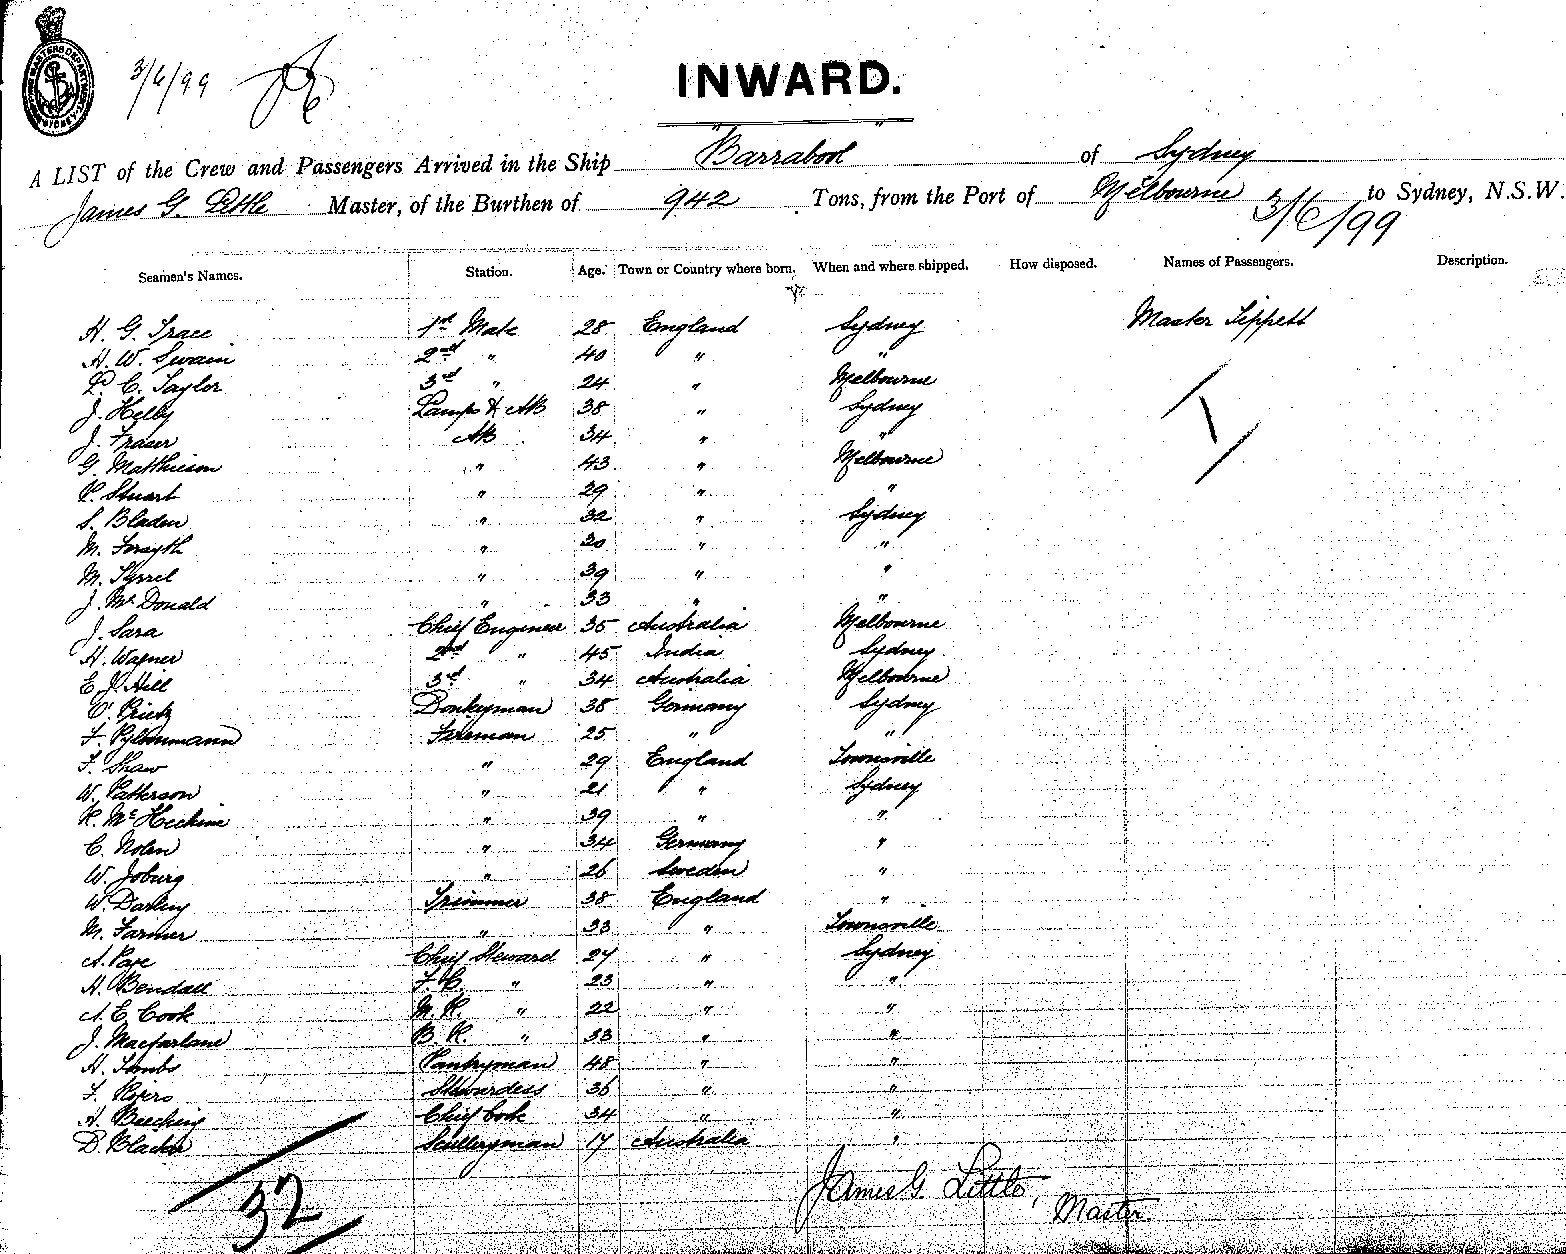 MARITERS DEPARTMENT SYDNEY
3/6/99
INWARD.
A LIST of the Crew and Passengers Arrived in the Ship "Barrabool" of Sydney
James G. Little Master, of the Burthen of 942 Tons, from the Port of Melbourne to Sydney, N.S.W.
3/6/99
Seamen's Names. Station. Age. Town or Country where born. When and where shipped. How disposed. Names of Passengers. Description.
H. G. Trace 1st Mate 28 England Sydney Master Tippett
H. W. Swain 2nd " 40 " "
L. C. Taylor 3rd " 24 " Melbourne
J. Helby Lamps & AB 38 " Sydney
J. Fraser AB 34 " "
G. Matthieson " 43 " Melbourne
P. Stuart " 29 " "
S. Bladen " 32 " Sydney
M. Forsyth " 30 " "
M. Tyrrel " 39 " "
J. McDonald " 33 " "
J. Sara Chief Engineer 35 Australia Melbourne
H. Wagner 2nd " 45 India Sydney
E. J. Hill 3rd " 34 Australia Melbourne
Prietz Donkeyman 38 Germany Sydney
F. Fireman 25 " "
F. Shaw " 29 England Townsville
W. Patterson " 21 " Sydney
R. " 39 " "
C. Nolen " 34 Germany "
W. Joburg " 26 Sweden "
W. Darling Trimmer 38 England "
M. Farmer " 33 " Townsville
A. Page Chief Steward 24 " Sydney
H. Bendall F. C. " 23 " "
A. E. Cook M. R. " 22 " "
J. Macfarlane B. R. " 33 " "
H. Tombs Pantryman 48 " "
F. Rogers Stewardess 36 " "
H. Beeching Chief Cook 34 " "
D. Blacker Sculleryman 17 Australia "
James G. Little,
Master.
32
1